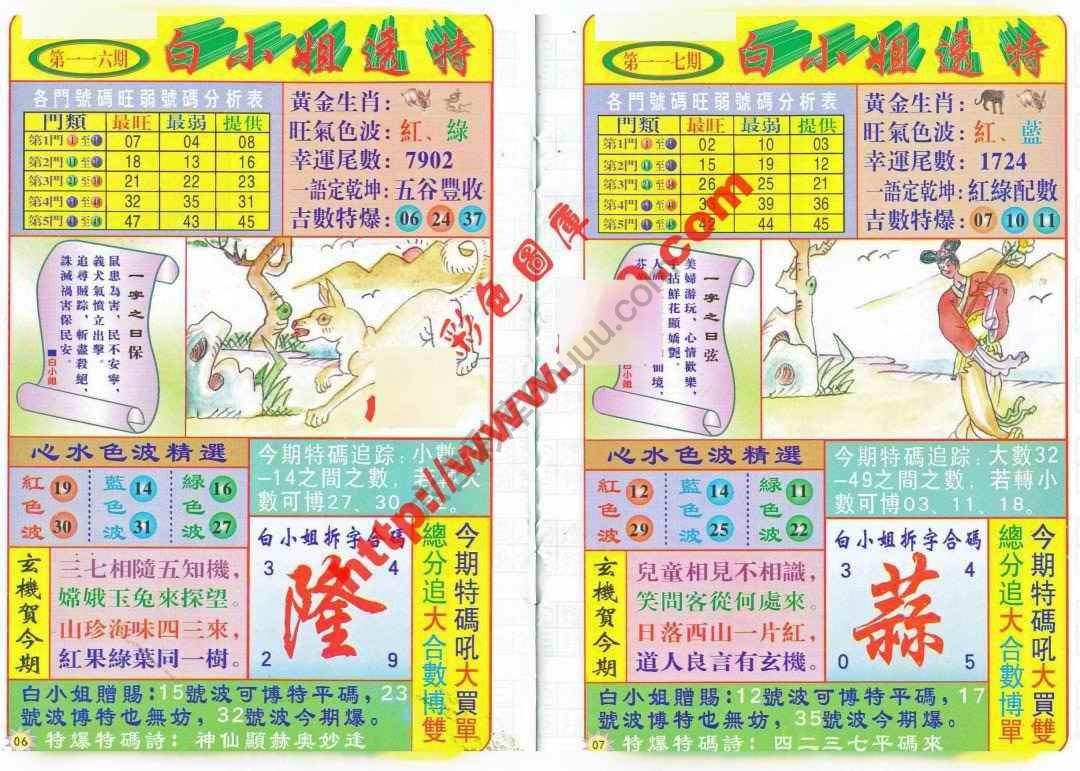 第一一六期
白小姐透特
各門號碼旺弱號碼分析表
門類 最旺 最弱 提供
第1門 1至 07 04 08
第2門 至 18 13 16
第3門 至 21 22 23
第4門 至 32 35 31
第5門 至 47 43 45
黃金生肖:
旺氣色波: 紅、綠
幸運尾數: 7902
一語定乾坤: 五谷豐收
吉數特爆: 06 24 37
一字之日保
鼠患為害,民不安寧,
義犬氣憤立出擊。
追尋賊踪,斬盡殺絕,
誅滅禍害保民安。
■白小姐
心水色波精選
紅色波 19 30
藍色波 14 31
綠色波 16 27
今期特碼追踪: 小數
-14之間之數,若
數可博27、30
白小姐拆字合碼
3 4
隆
2 9
總分追大合數博雙
今期特碼吼大買單
玄機賀今期
三七相隨五知機,
嫦娥玉兔來探望。
山珍海味四三來,
紅果綠葉同一樹。
白小姐贈賜:15號波可博特平碼,23
號波博特也無妨,32號波今期爆。
06 特爆特碼詩: 神仙顯赫奧妙逢
第一一七期
白小姐透特
各門號碼旺弱號碼分析表
門類 最旺 最弱 提供
第1門 1至 02 10 03
第2門 至 15 19 12
第3門 至 26 25 21
第4門 至 39 36
第5門 至 42 44 45
黃金生肖:
旺氣色波: 紅、藍
幸運尾數: 1724
一語定乾坤: 紅綠配數
吉數特爆: 07 10 11
一字之日弦
美婦游玩,心情歡樂,
拈鮮花顯嬌艷。
人 仙境,
芬
白小姐
心水色波精選
紅色波 12 29
藍色波 14 25
綠色波 11 22
今期特碼追踪: 大數32
-49之間之數,若轉小
數可博03、11、18。
白小姐拆字合碼
3 4
蒜
0 5
總分追大合數博單
今期特碼吼大買雙
玄機賀今期
兒童相見不相識,
笑問客從何處來。
日落西山一片紅,
道人良言有玄機。
白小姐贈賜:12號波可博特平碼,17
號波博特也無妨,35號波今期爆。
07 特爆特碼詩: 四二三七平碼來
彩色圖庫
http://www.
.com